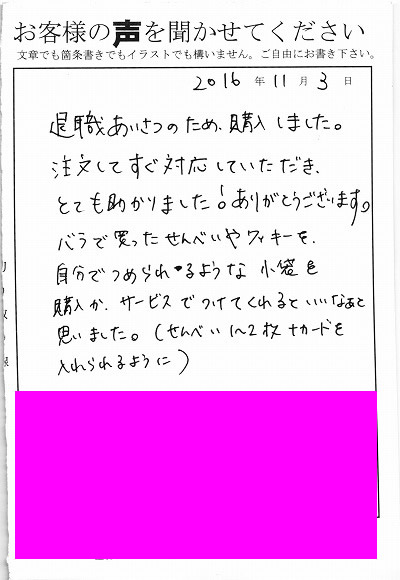 お客様の声を聞かせてください
文章でも箇条書きでもイラストでも構いません。ご自由にお書き下さい。
2016年11月3日
退職あいさつのため、購入しました。
注文してすぐ対応していただき、
とても助かりました！ありがとうございます。
バラで買ったせんべいやクッキーを、
自分でつめられるような小袋を
購入か、サービスでつけてくれるといいなぁと
思いました。（せんべい1〜2枚+カードを
入れられるように）